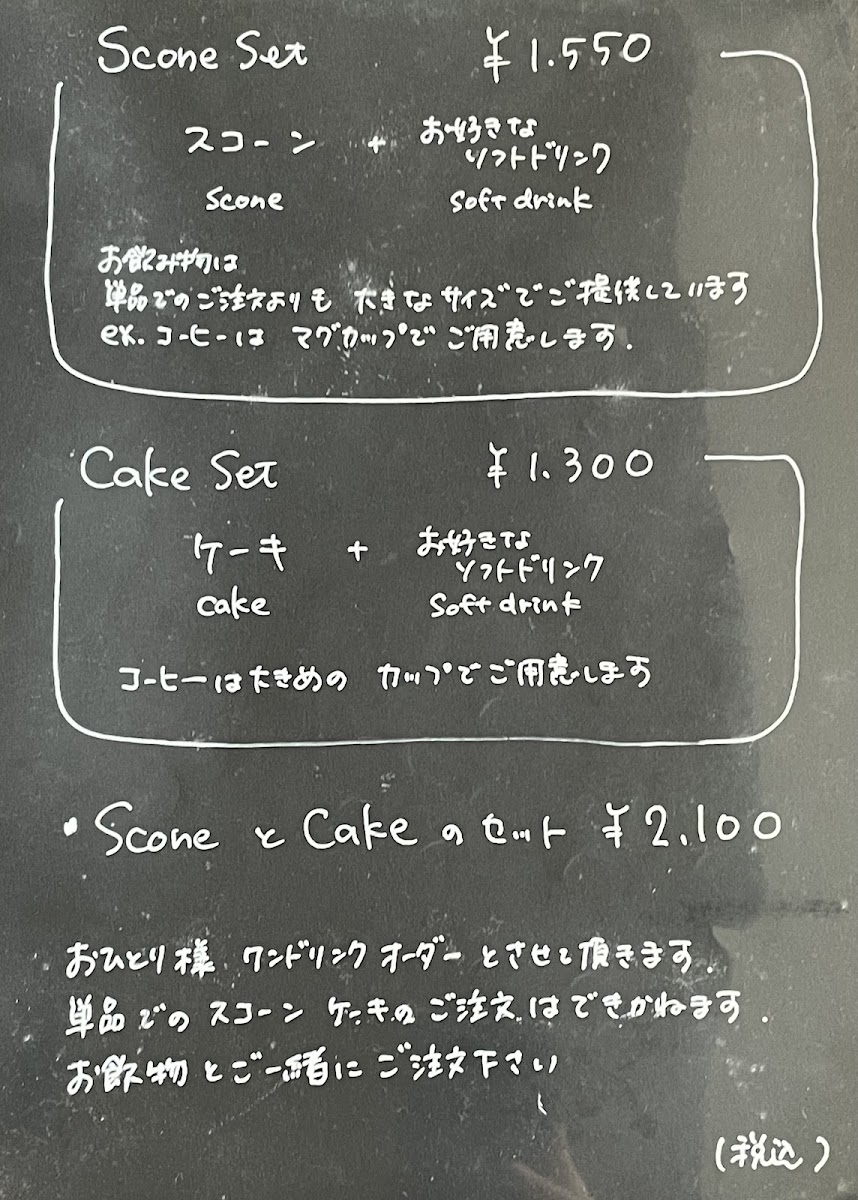 Scone Set ¥1.550
スコーン + お好きな
ソフトドリンク
scone soft drink
お飲み物は
単品でのご注文よりも 大きなサイズでご提供しています
ex. コーヒーは マグカップで ご用意します.
Cake Set ¥1.300
ケーキ + お好きな
ソフトドリンク
cake soft drink
コーヒーは大きめの カップでご用意します
・Scone と Cake のセット ¥2.100
おひとり様 ワンドリンク オーダーとさせて頂きます.
単品での スコーン ケーキの ご注文はできかねます.
お飲物とご一緒にご注文下さい
(税込)